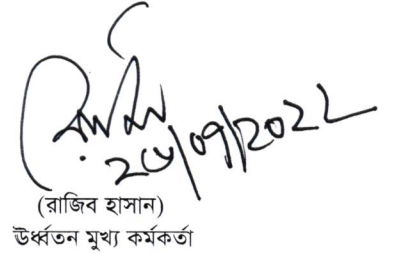 ২৬/০৭/২০২২
(রাজিব হাসান)
ঊর্ধ্বতন মুখ্য কর্মকর্তা